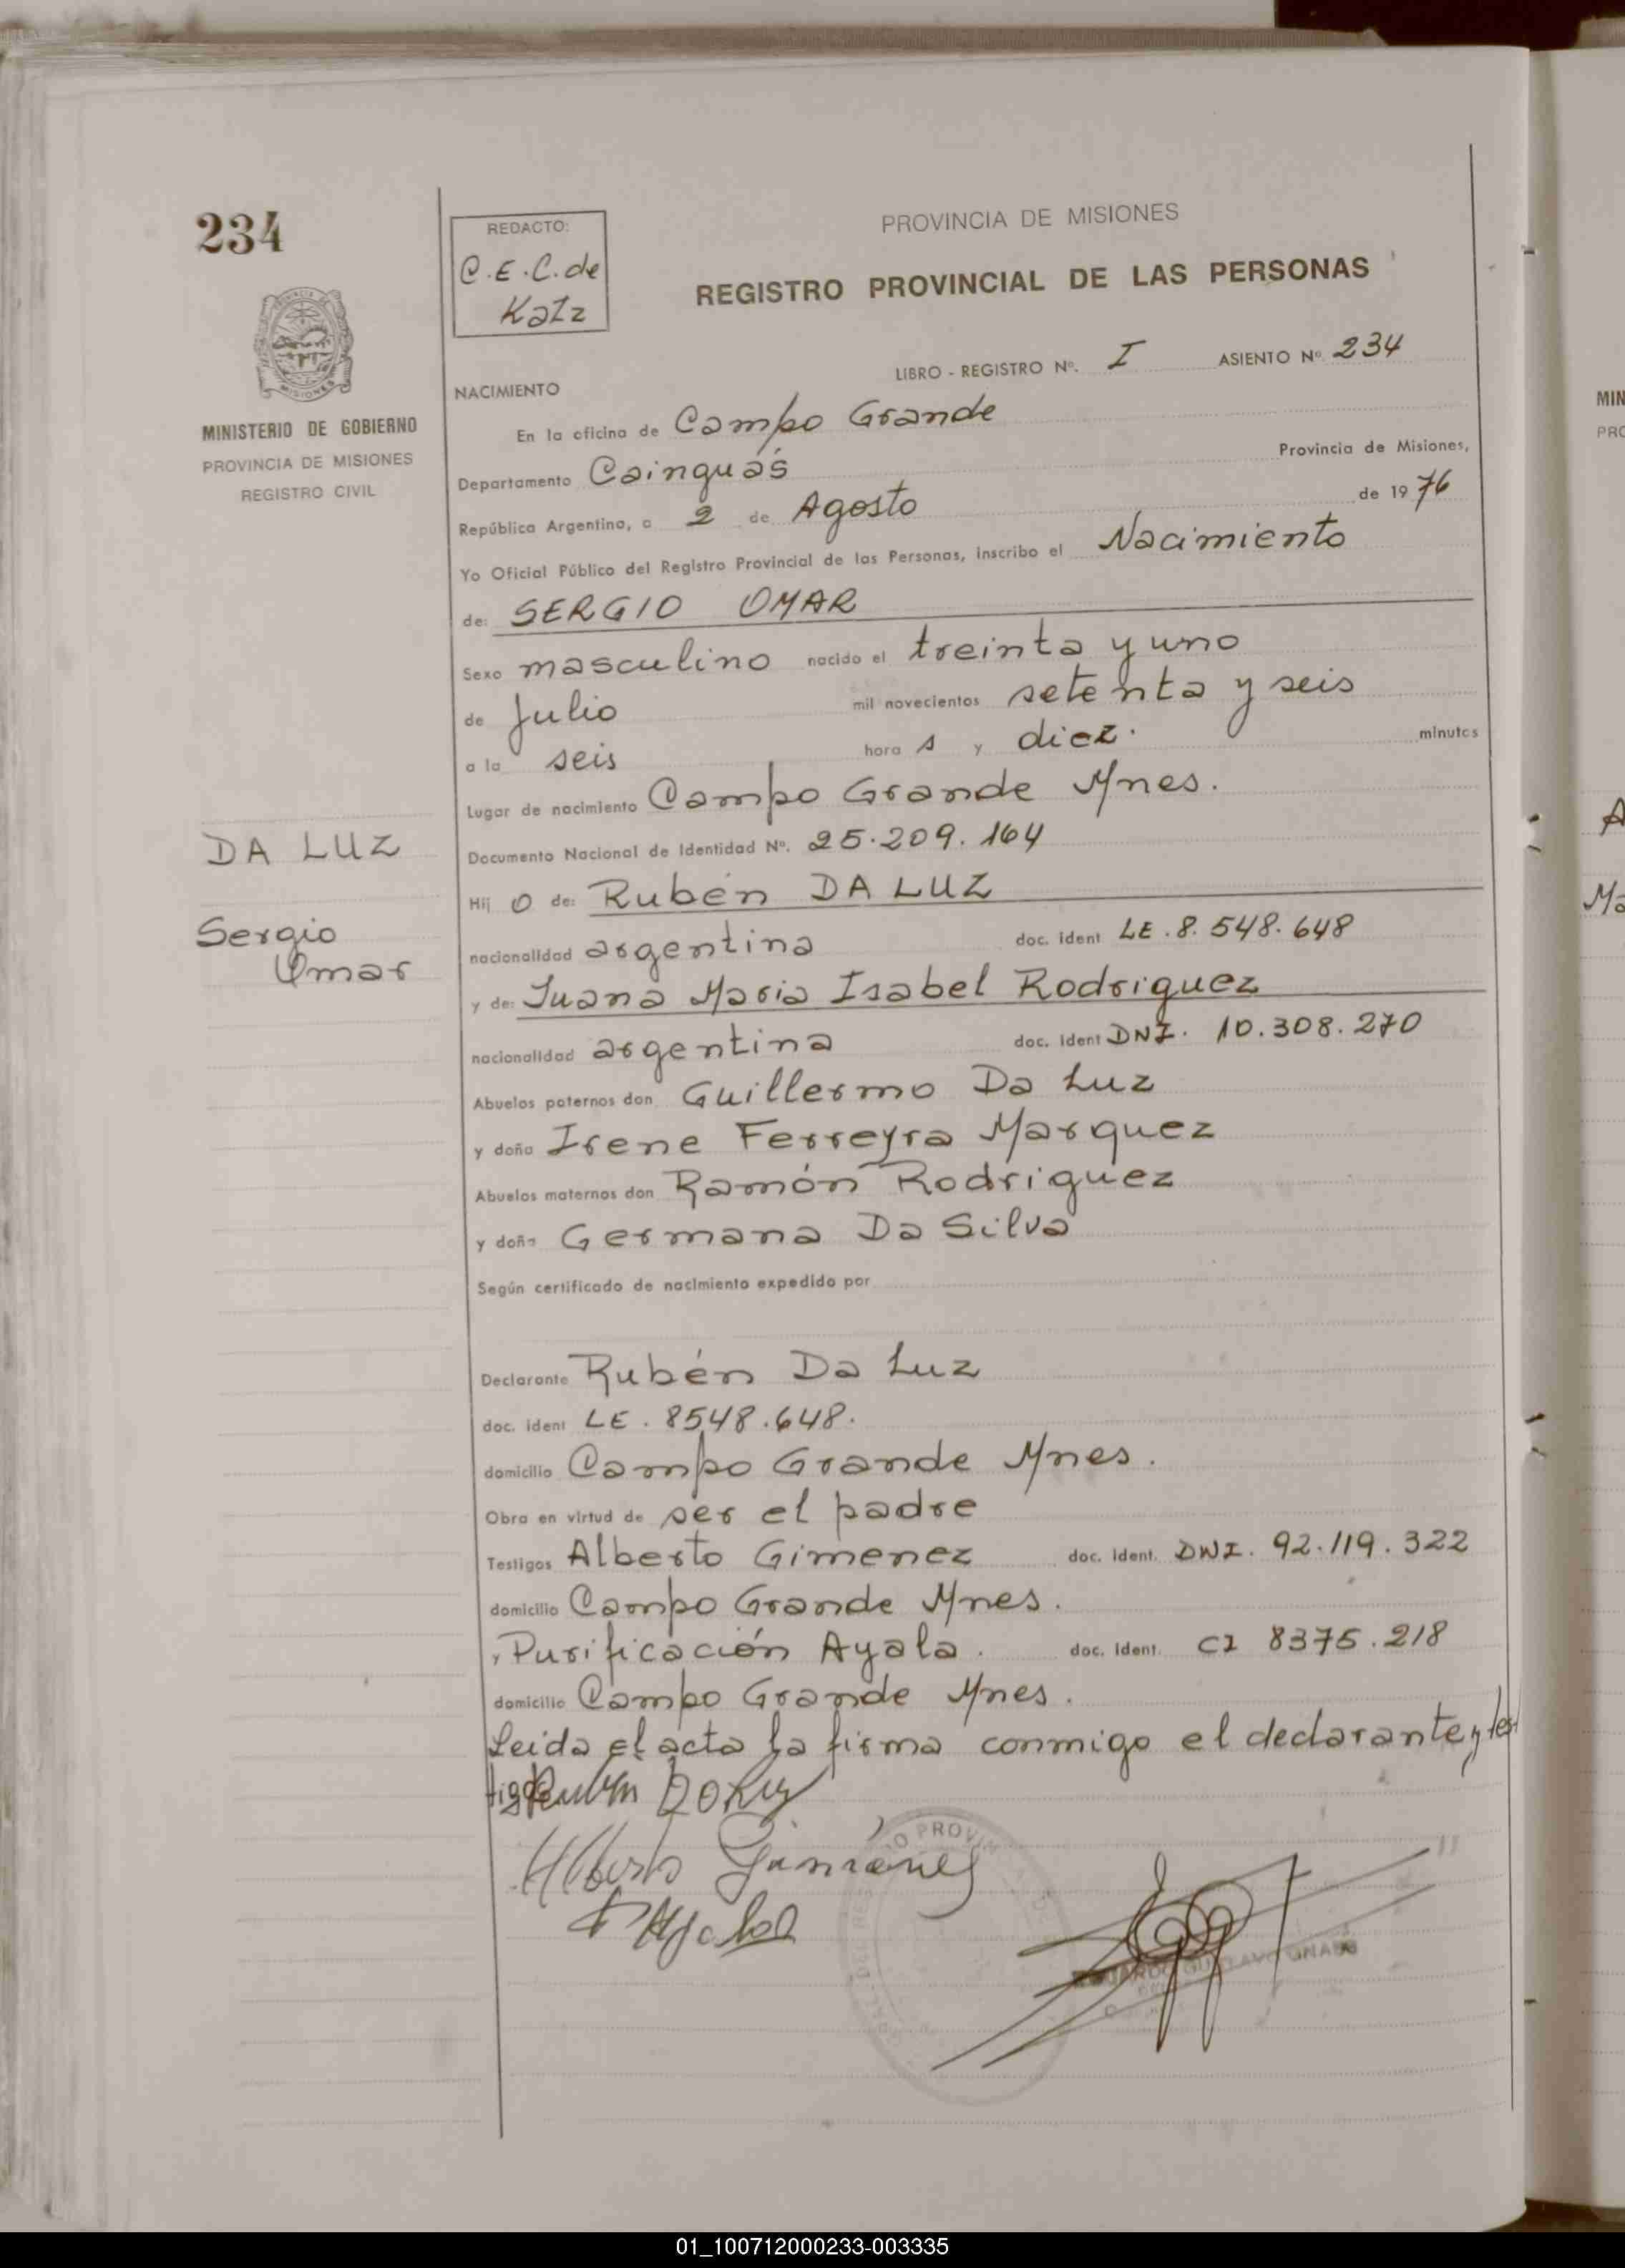 234
REDACTO:
C.E.C. de
Katz
PROVINCIA DE MISIONES
REGISTRO PROVINCIAL DE LAS PERSONAS
MINISTERIO DE GOBIERNO
PROVINCIA DE MISIONES
REGISTRO CIVIL
LIBRO - REGISTRO Nº. I ASIENTO Nº 234
NACIMIENTO
En la oficina de Campo Grande
Departamento Cainguás Provincia de Misiones,
República Argentina, a 2 de Agosto de 1976
Yo Oficial Público del Registro Provincial de las Personas, inscribo el Nacimiento
de: SERGIO OMAR
Sexo masculino nacido el treinta y uno
de Julio mil novecientos setenta y seis
a la seis hora s y diez. minutos
Lugar de nacimiento Campo Grande Mnes.
DA LUZ
Sergio
Omar
Documento Nacional de Identidad Nº. 25.209.164
Hij o de: Rubén DA LUZ
nacionalidad argentina doc. ident LE. 8.548.648
y de: Juana Maria Isabel Rodriguez
nacionalidad argentina doc. ident DNI. 10.308.270
Abuelos paternos don Guillermo Da Luz
y doña Irene Ferreyra Marquez
Abuelos maternos don Ramón Rodriguez
y doña Germana Da Silva
Según certificado de nacimiento expedido por
Declarante Rubén Da Luz
doc. ident LE. 8548.648.
domicilio Campo Grande Mnes.
Obra en virtud de ser el padre
Testigos Alberto Gimenez doc. ident. DNI. 92.119.322
domicilio Campo Grande Mnes.
y Purificación Ayala. doc. ident. CI 8375.218
domicilio Campo Grande Mnes.
Leida el acta la firma conmigo el declarante y tes
tigos
Alberto Gimenez
P Ayala
01_100712000233-003335